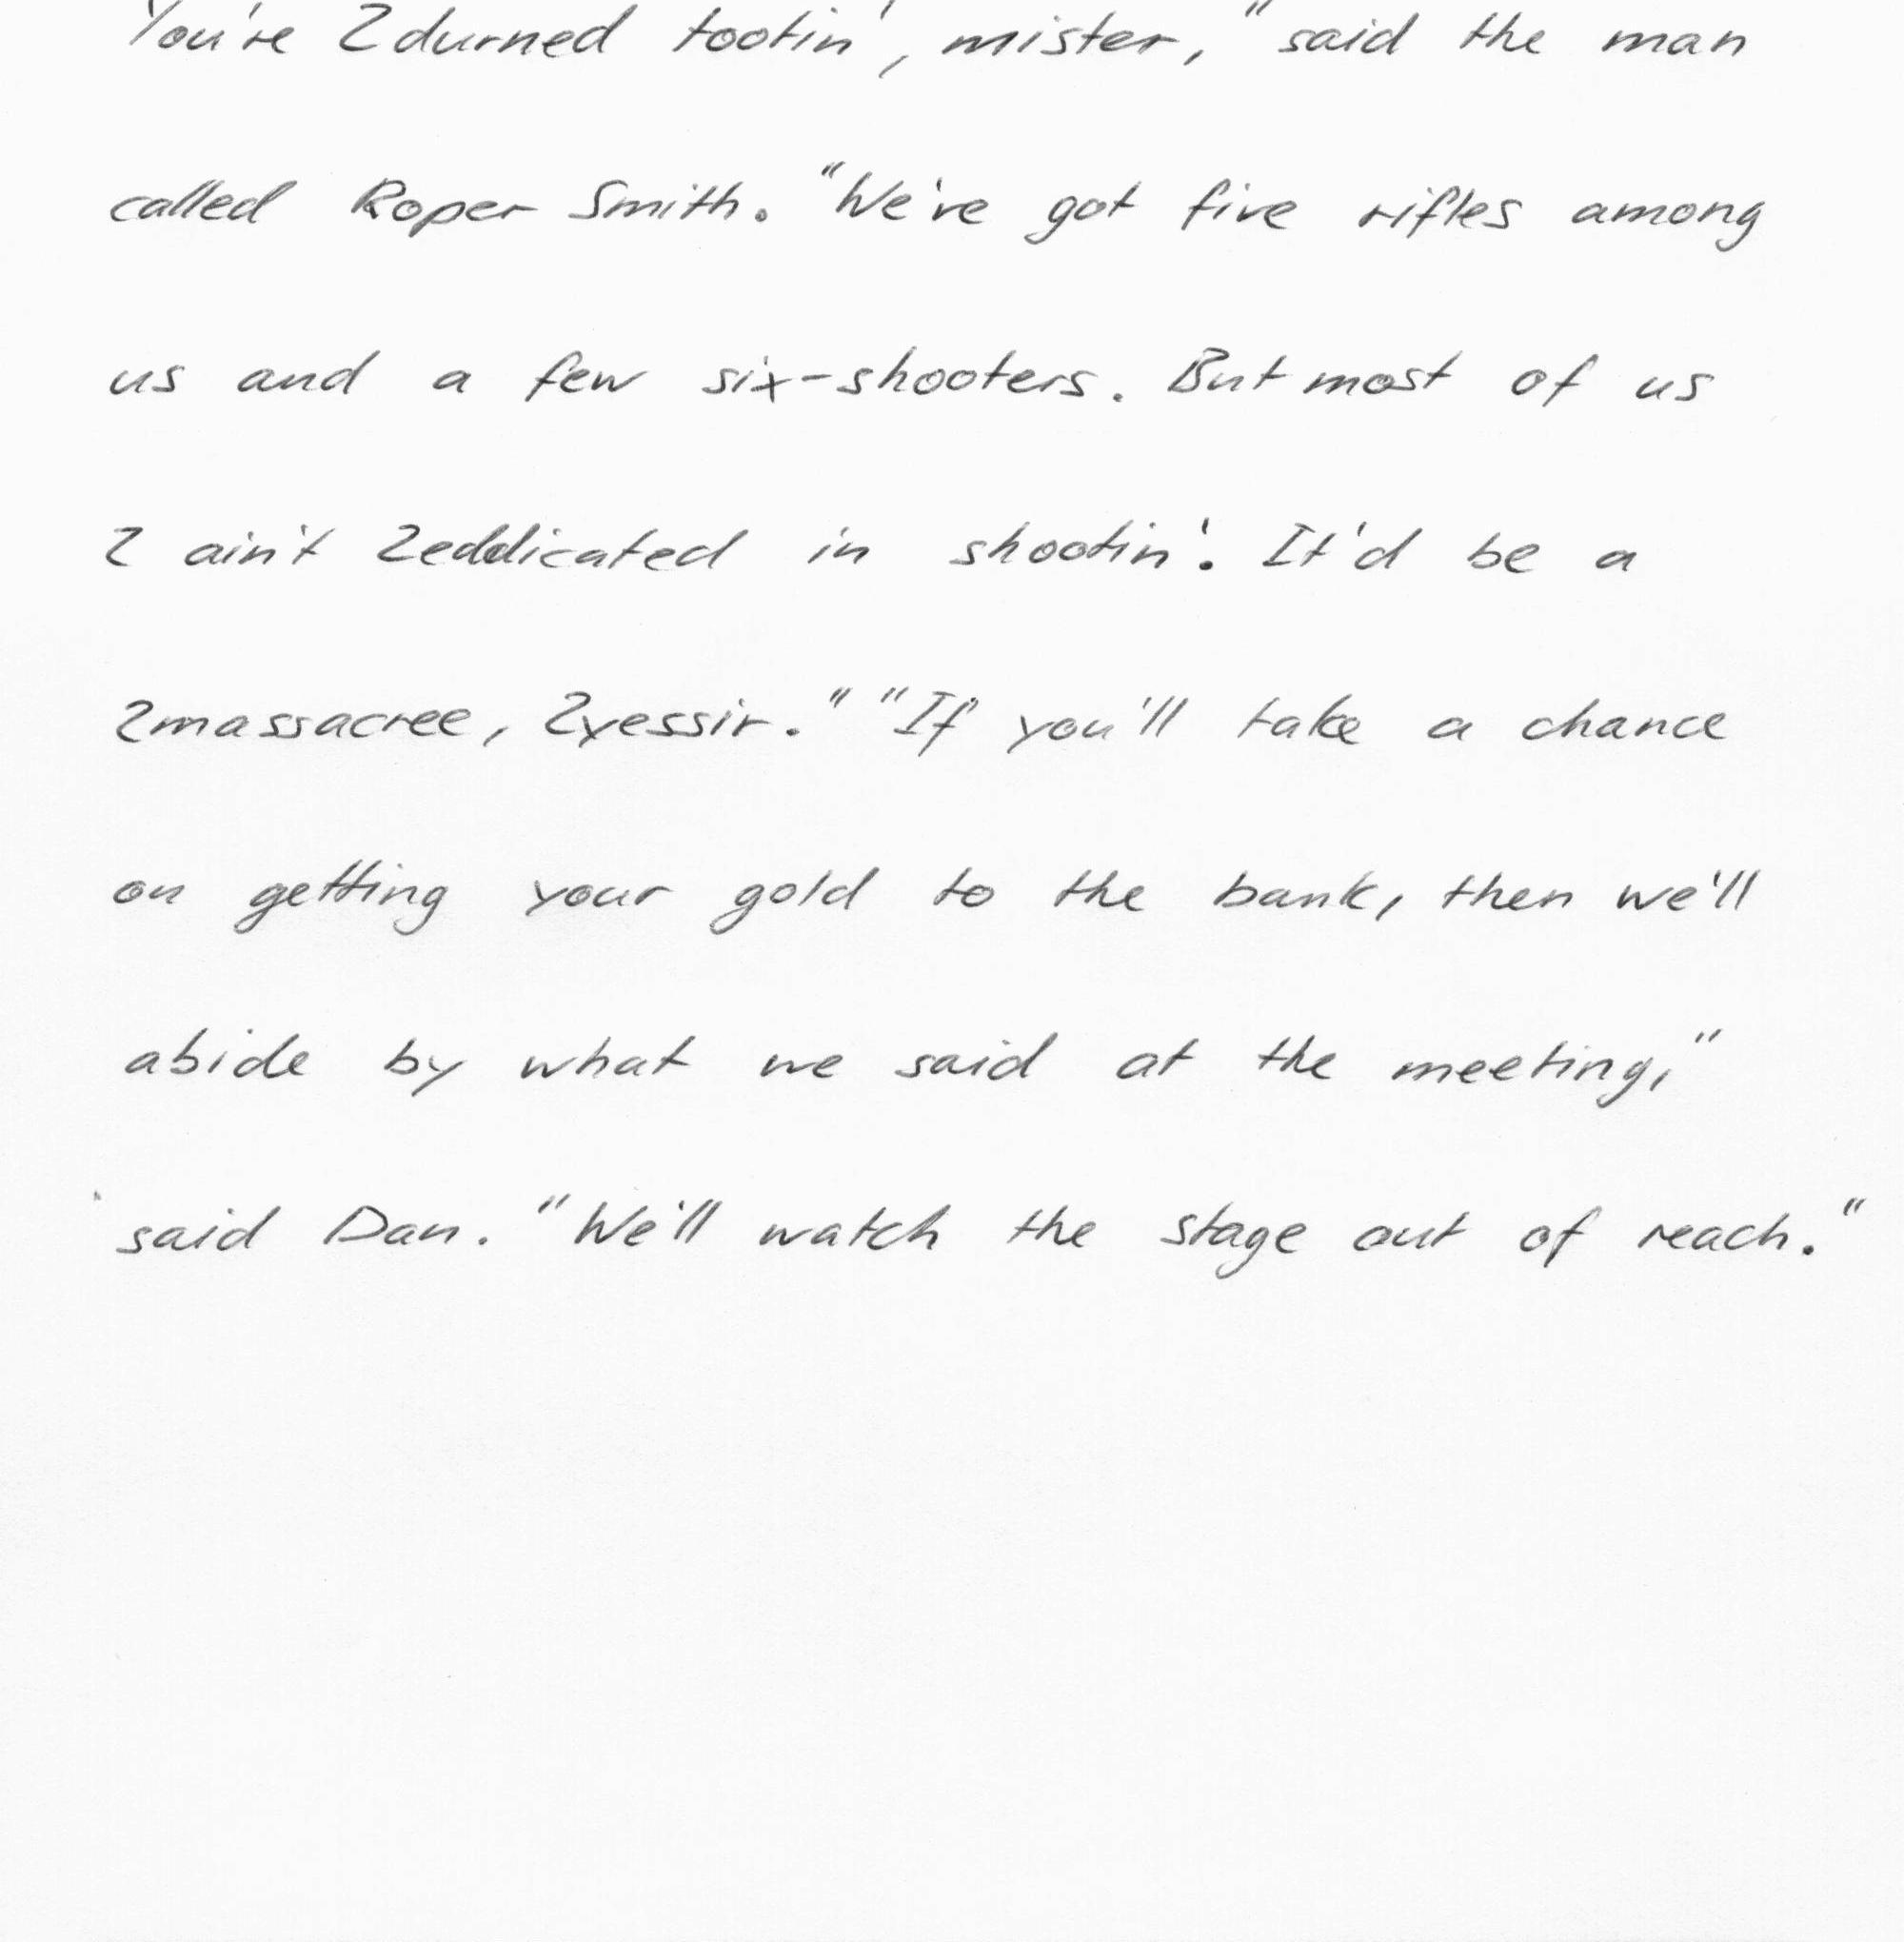 You're 2durned tootin', mister," said the man
called Roper Smith. "We've got five rifles among
us and a few six-shooters. But most of us
2 ain't 2eddicated in shootin'. It'd be a
2massacree, 2yessir." "If you'll take a chance
on getting your gold to the bank, then we'll
abide by what we said at the meeting,"
said Dan. "We'll watch the stage out of reach."